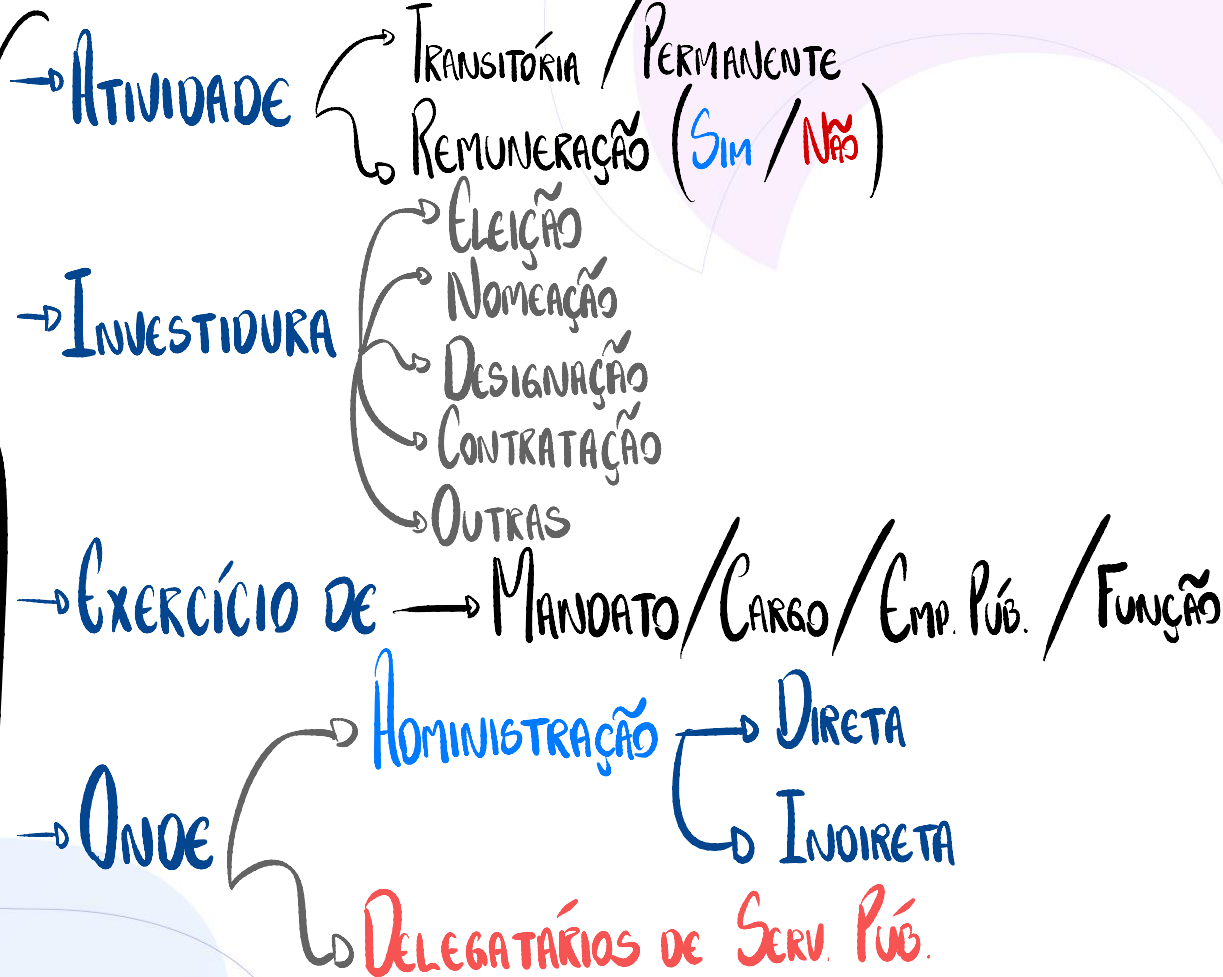 →ATIVIDADE
TRANSITÓRIA / PERMANENTE
REMUNERAÇÃO (SIM / NÃO)
→INVESTIDURA
ELEIÇÃO
NOMEAÇÃO
DESIGNAÇÃO
CONTRATAÇÃO
OUTRAS
→EXERCÍCIO DE → MANDATO / CARGO / EMP. PÚB. / FUNÇÃO
→ONDE
ADMINISTRAÇÃO
DIRETA
INDIRETA
DELEGATÁRIOS DE SERV. PÚB.